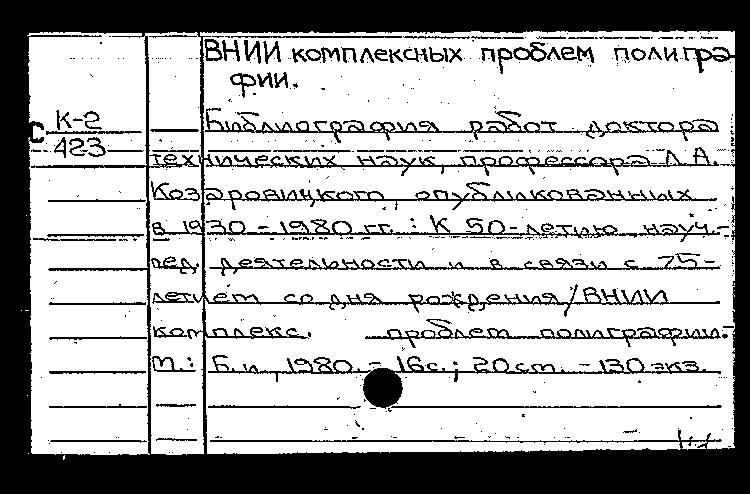 ВНИИ комплексных проблем полигра-
фии.
К-2
С
423
Библиография работ доктора
технических наук, профессора Л.А.
Козаровицкого, опубликованных
в 1930-1980 гг. : К 50-летию науч.-
пед. деятельности и в связи с 75-
летием со дня рождения/ВНИИ
комплекс. проблем полиграфии.-
М.: Б.и., 1980. - 16с.; 20см. - 130 экз.